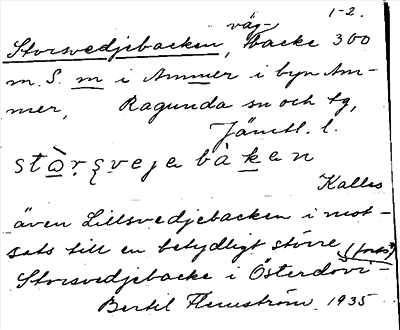 1-2.
väg-
Storsvedjebacken, backe 300
m. S. m i Ammer i byn Am-
mer, Ragunda sn och tg,
Jämtl. l.
Kallas
även Lillsvedjebacken i mot-
sats till en betydligt större (forts)
Storsvedjebacke i Österövi-
Bertil Flemström 1935